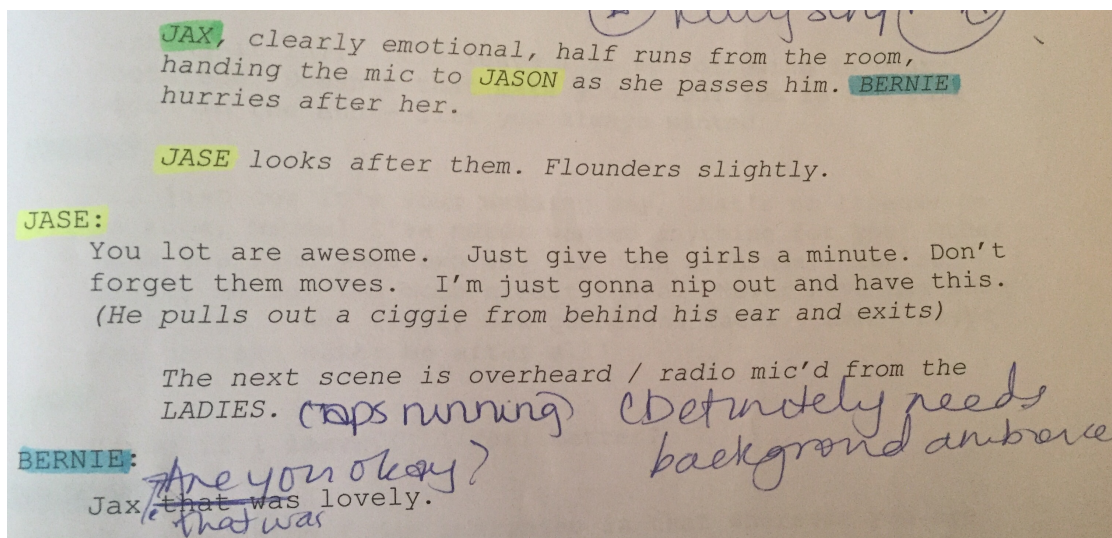 JAX, clearly emotional, half runs from the room,
handing the mic to JASON as she passes him. BERNIE
hurries after her.
JASE looks after them. Flounders slightly.
JASE:
You lot are awesome.  Just give the girls a minute. Don't
forget them moves.  I'm just gonna nip out and have this.
(He pulls out a ciggie from behind his ear and exits)
The next scene is overheard / radio mic'd from the
LADIES. (taps running) (Definitely needs
backgrond ambience
BERNIE:
Are you okay?
Jax, that was lovely.
that was